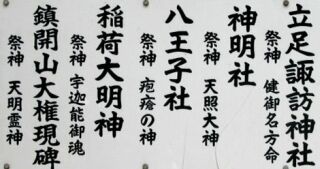 立足諏訪神社
祭神 健御名方命
神明社
祭神 天照大神
八王子社
祭神 疱瘡の神
稲荷大明神
祭神 宇迦能御魂
鎮開山大権現碑
祭神 天明霊神